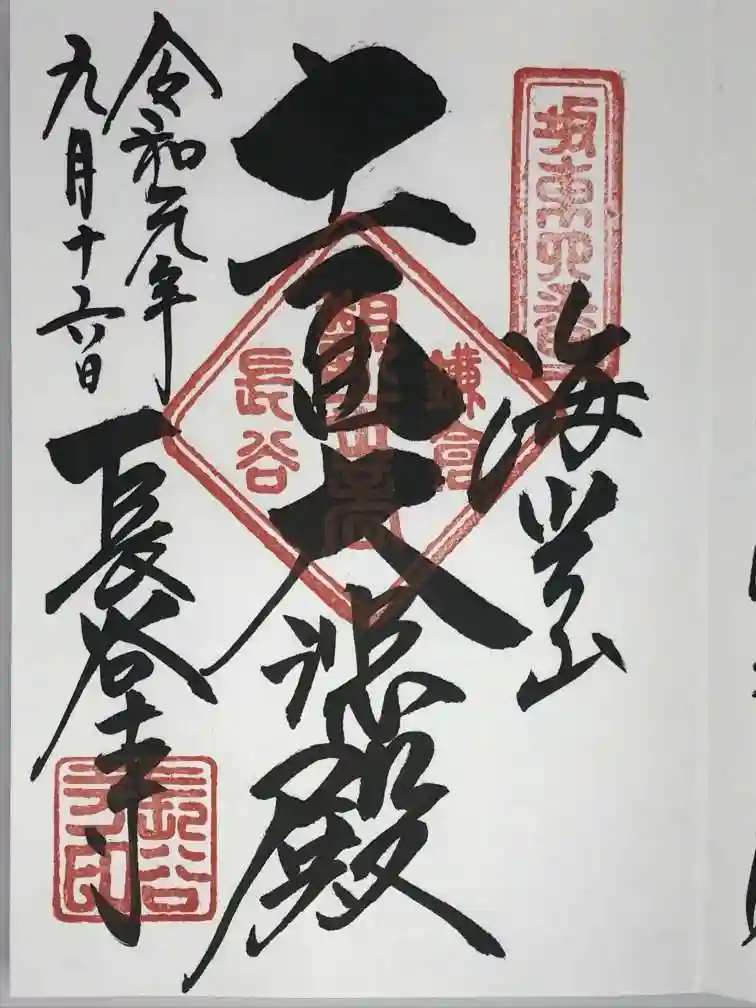 坂東四番
海光山
十一面大悲殿
鎌倉
長谷
令和元年
九月十六日
長谷寺
長谷
寺印